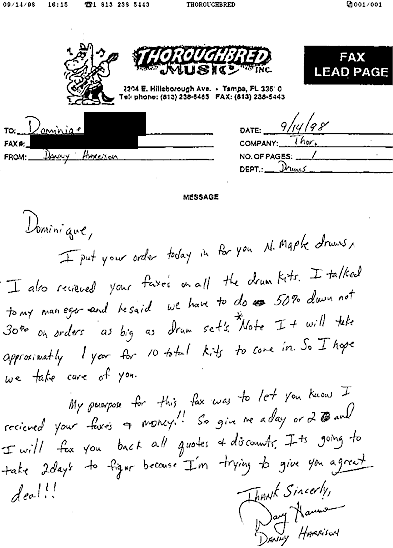 09/14/98 16:15 ☎1 813 238 5443 THOROUGHBRED 001/001
THOROUGHBRED
MUSIC INC.
2204 E. Hillsborough Ave. • Tampa, FL 33610
Telephone: (813) 238-6485 FAX: (813) 238-5443
FAX
LEAD PAGE
TO: Dominique
FAX#:
FROM: Danny Harrison
DATE: 9/14/98
COMPANY: Thor.
NO. OF PAGES: 1
DEPT.: Drums
MESSAGE
Dominique,
I put your order today in for you N. Maple drums,
I also recieved your faxes on all the drum kits. I talked
to my manager and he said we have to do 50% down not
30% on orders as big as drum set's *Note It will take
approximatly 1 year for 10 total kits to come in. So I hope
we take care of you.
My puorpose for this fax was to let you know I
recieved your faxes & money!! So give me a day or 2 and
I will fax you back all quotes & discounts. Its going to
take 2 day's to figur because I'm trying to give you a great
deal!!!
Thank Sincerly,
Danny Harrison
DANNY HARRISON